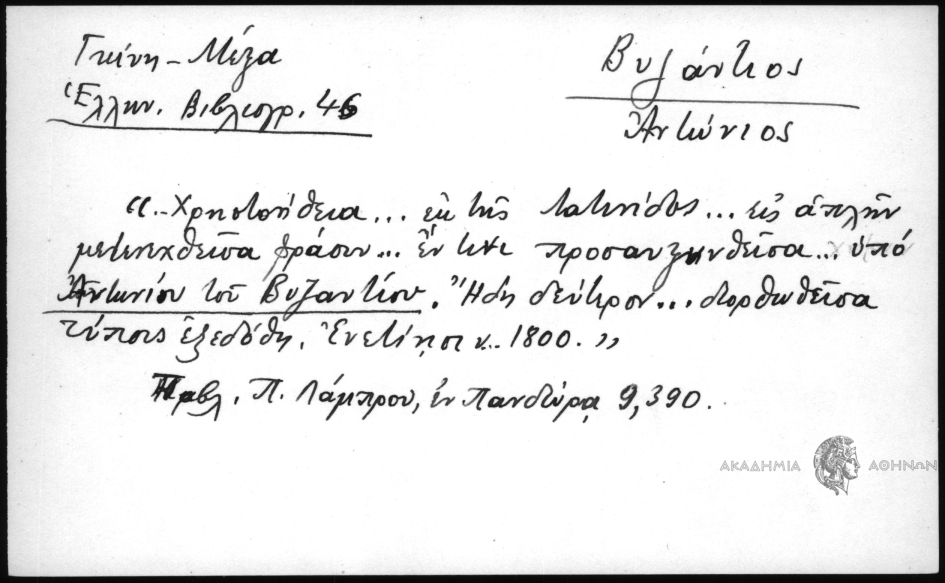 Γκίνη - Μέξα
Ἑλλην. Βιβλιογρ. 46
Βυζάντιος
Ἀντώνιος
"..Χρηστοήθεια... ἐκ τῆς Λατινίδος... εἰς ἁπλῆν
μετενεχθεῖσα φράσιν... ἔν τινι προσαυξηνθεῖσα... ὑπό
Ἀντωνίου τοῦ Βυζαντίου. Ἤδη δεύτερον... διορθωθεῖσα
τύποις ἐξεδόθη. Ἐνετίῃσι ν.. 1800."
Πρβλ. Π. Λάμπρου, ἐν Πανδώρᾳ 9,390.
ΑΚΑΔΗΜΙΑ ΑΘΗΝΩΝ